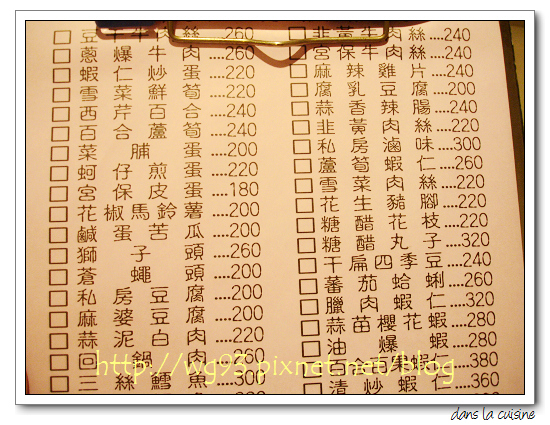 豆干牛肉絲...260
蔥爆牛肉...260
蝦仁炒蛋...220
雪菜鮮筍...220
西芹百合...240
百合蘆筍...240
菜脯蛋...200
蚵仔煎蛋...220
宮保皮蛋...180
花椒馬鈴薯...200
鹹蛋苦瓜...200
獅子頭...260
蒼蠅頭...200
私房豆腐...200
麻婆豆腐...200
蒜泥白肉...220
回鍋肉...260
三絲鱈魚...300
韭黃牛肉絲...240
宮保牛肉絲...240
麻辣雞片...240
腐乳豆腐...200
蒜香辣腸...240
韭黃肉絲...220
私房滷味...300
蘆筍蝦仁...260
雪菜肉絲...220
花生豬腳...220
糖醋花枝...220
糖醋丸子...320
干扁四季豆...240
蕃茄蛤蜊...260
臘肉蝦仁...320
蒜苗櫻花蝦...280
油爆蝦...280
百合白果蝦仁...380
清炒蝦仁...360
http://wg93.pixnet.net/blog
dans la cuisine